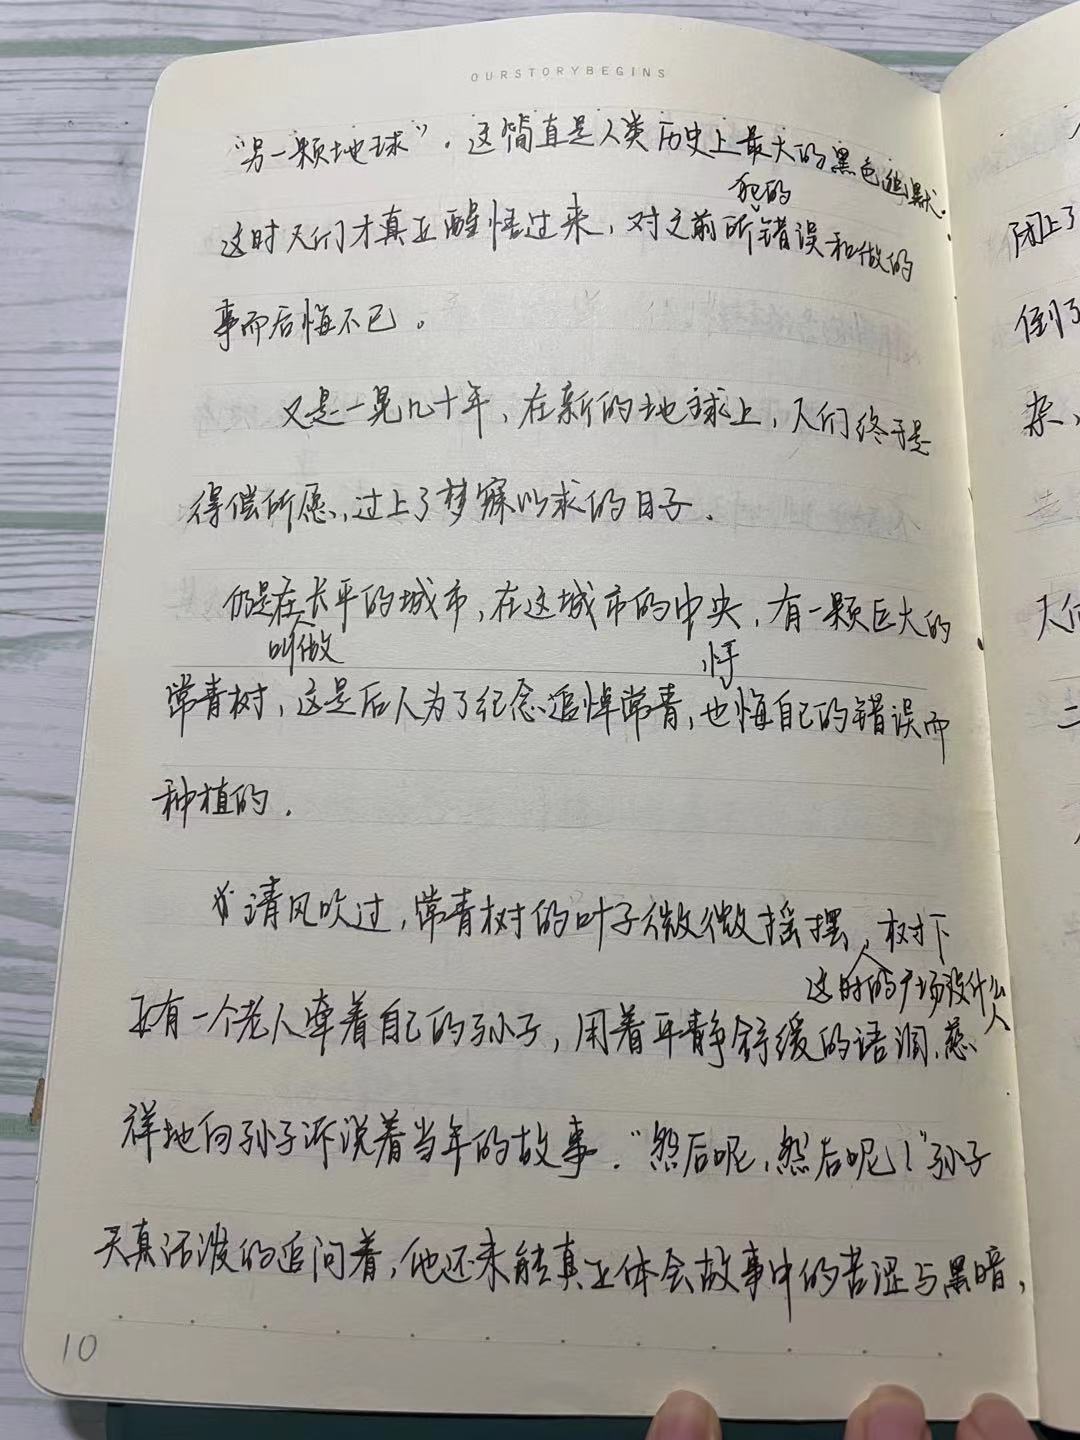 OURSTORYBEGINS
“另一颗地球”。这简直是人类历史上最大的黑色幽默。
犯的
这时人们才真正醒悟过来，对之前所错误和做的
事而后悔不已。
又是一晃几十年，在新的地球上，人们终于是
得偿所愿，过上了梦寐以求的日子.
仍是在长平的城市，在这城市的中央，有一颗巨大的
叫做
忏
常青树，这是后人为了纪念追悼常青，也悔自己的错误而
种植的.
清风吹过，常青树的叶子微微摇摆，树下
这时的广场没什么人
正有一个老人牵着自己的孙子，用着平静舒缓的语调，慈
祥地向孙子诉说着当年的故事.“然后呢，然后呢！”孙子
天真活泼的追问着，他还未能真正体会故事中的苦涩与黑暗，
10
闭上了
倒了
杂、
人们
二